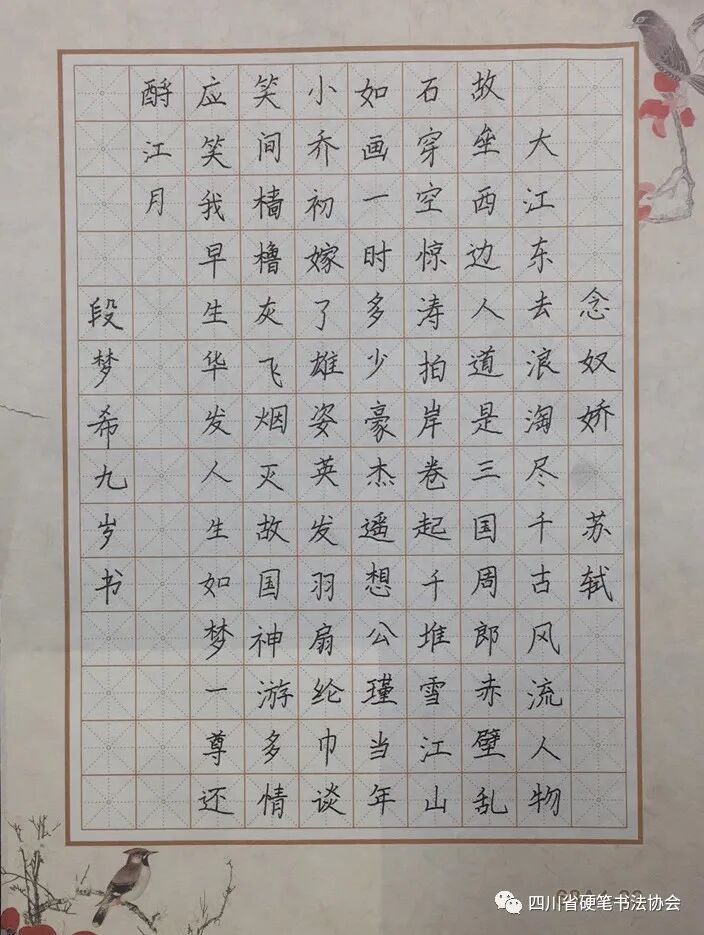 念奴娇 苏轼
大江东去浪淘尽千古风流人物
故垒西边人道是三国周郎赤壁乱
石穿空惊涛拍岸卷起千堆雪江山
如画一时多少豪杰遥想公瑾当年
小乔初嫁了雄姿英发羽扇纶巾谈
笑间樯橹灰飞烟灭故国神游多情
应笑我早生华发人生如梦一尊还
酹江月
段梦希九岁书
四川省硬笔书法协会